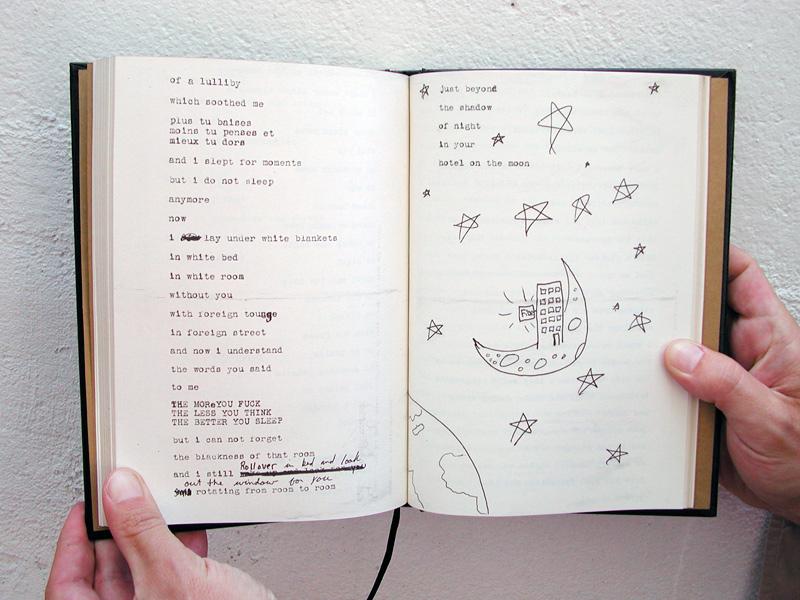 of a lulliby
which soothed me
plus tu baises
moins tu penses et
mieux tu dors
and i slept for moments
but i do not sleep
anymore
now
i lay under white blankets
in white bed
in white room
without you
with foreign tounge
in foreign street
and now i understand
the words you said
to me
THE MOReYOU FUCK
THE LESS YOU THINK
THE BETTER YOU SLEEP
but i can not forget
the blackness of that room
and i still Rollover in bed and look
out the window for you
rotating from room to room
just beyond
the shadow
of night
in your
hotel on the moon